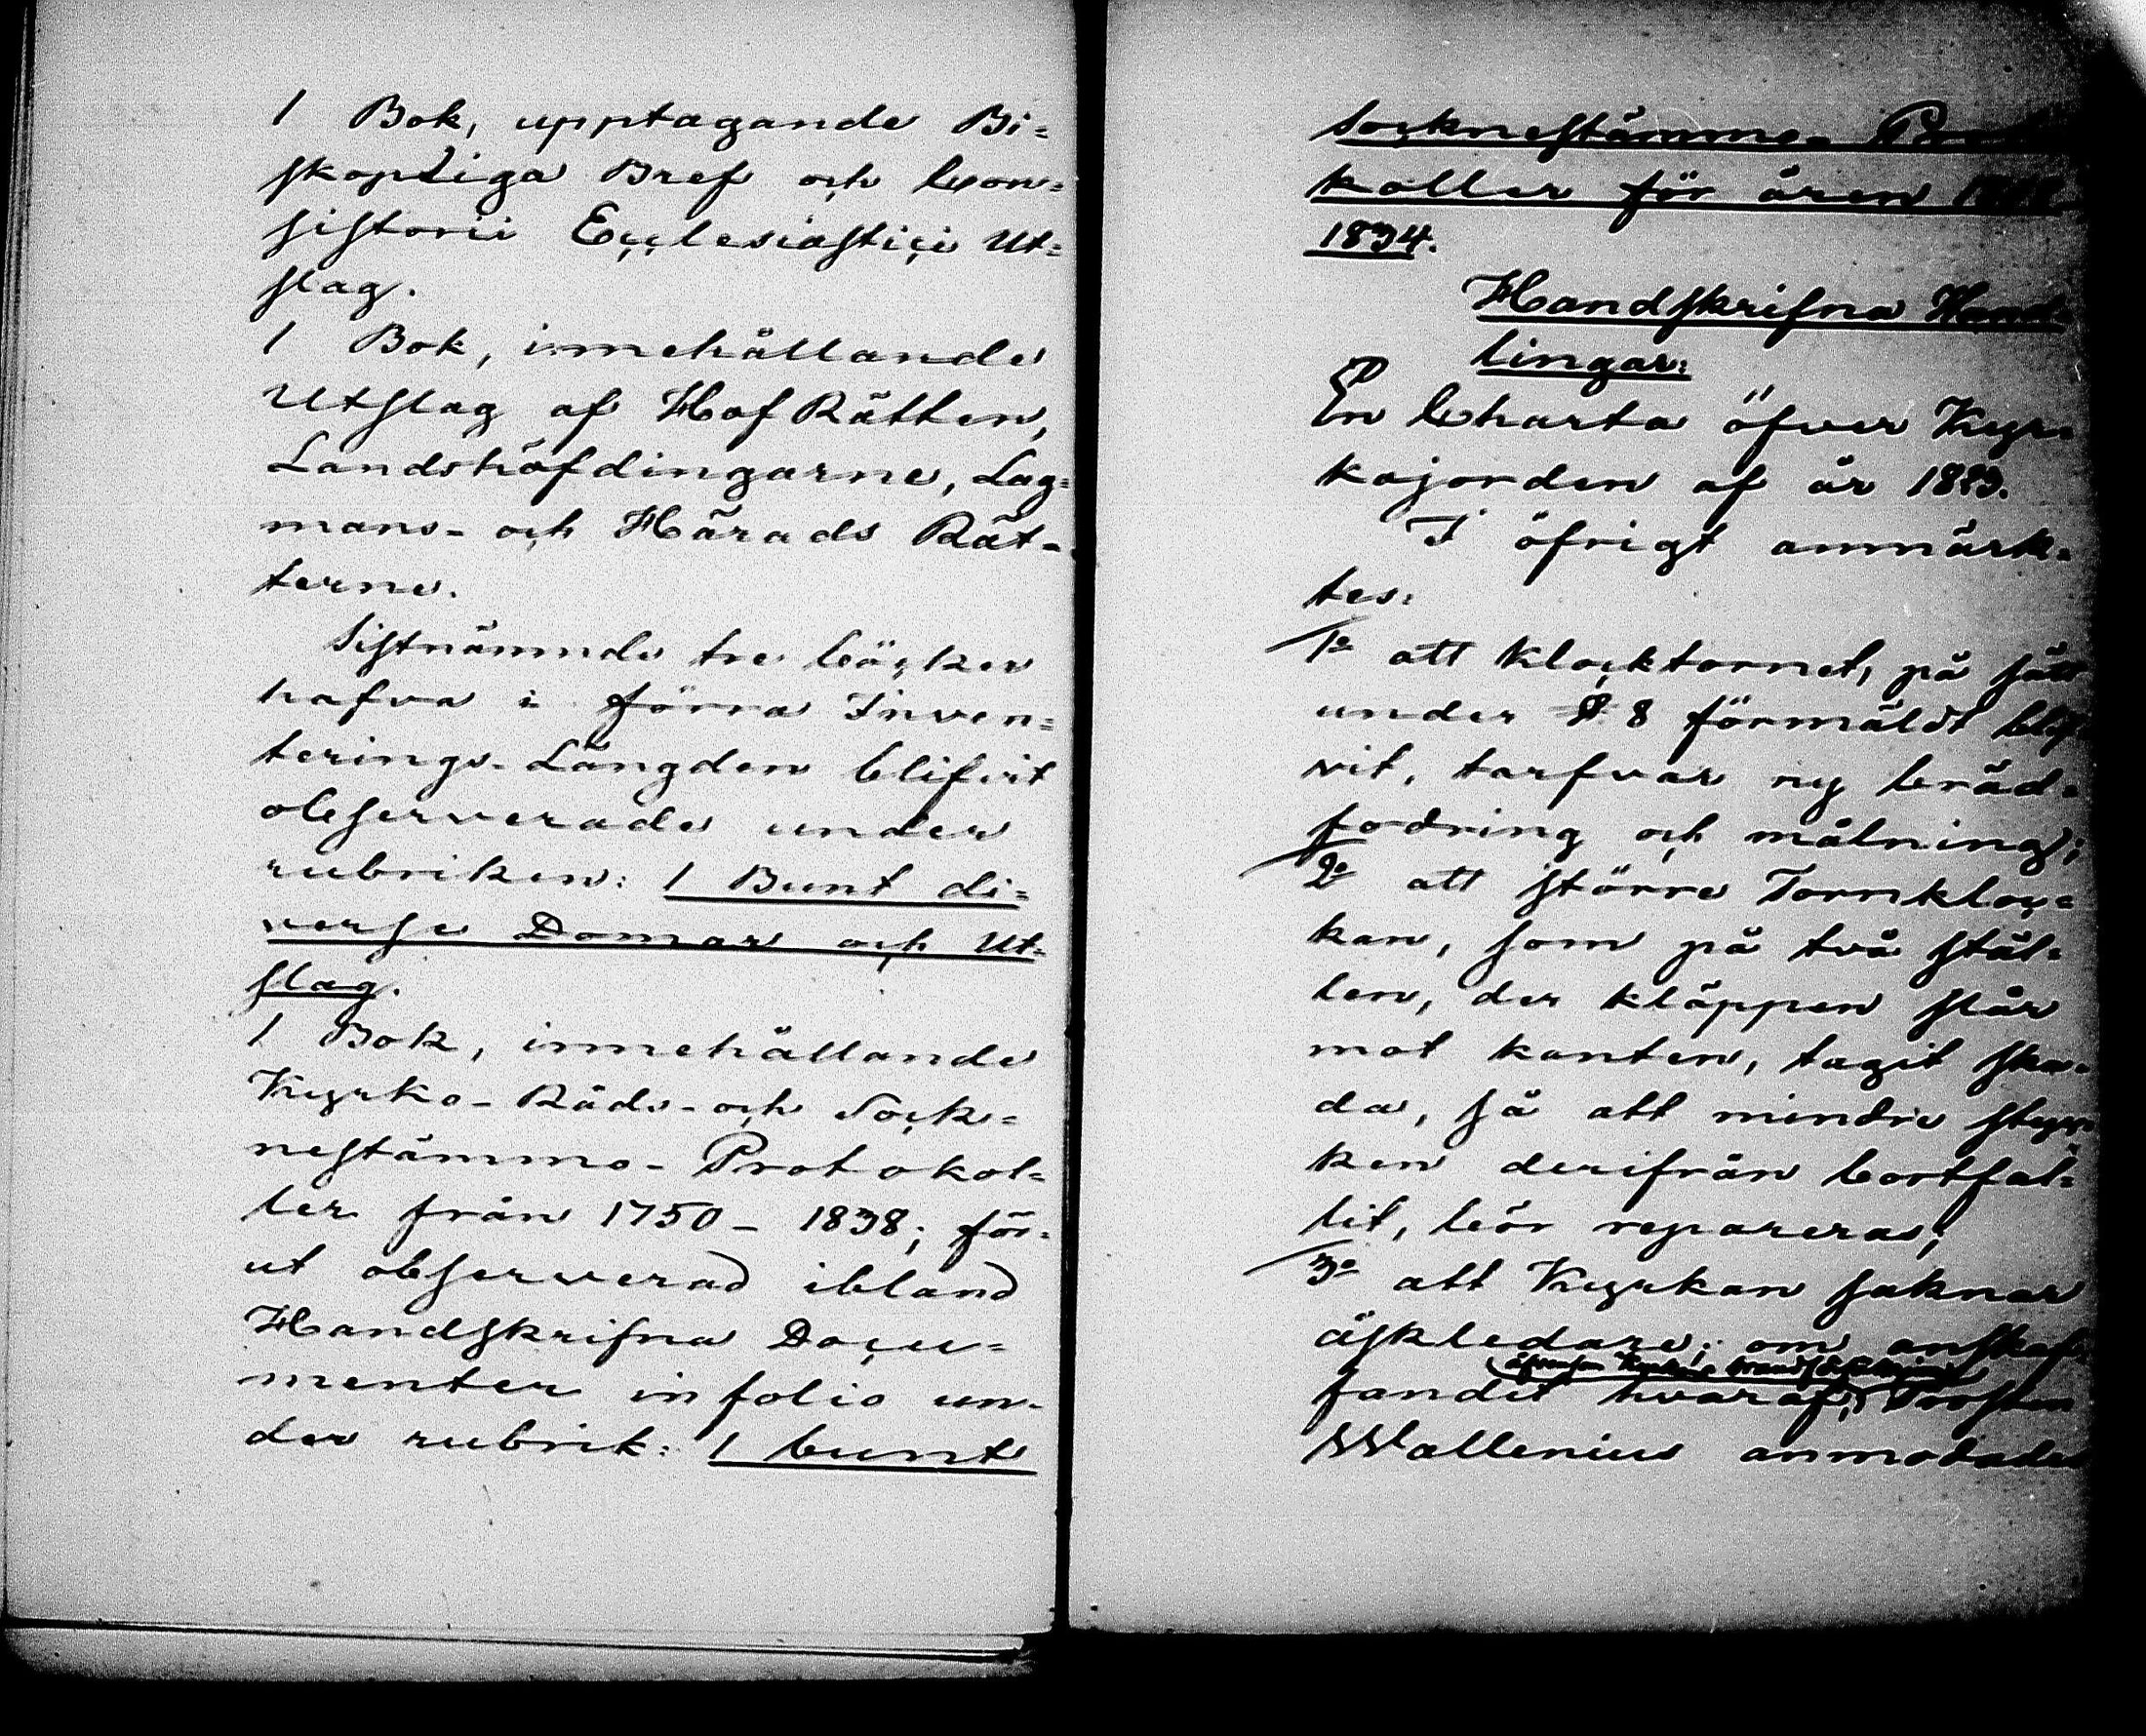 1 Bok, upptagande Bi=
skopliga Bref och Con=
sistorii Ecclesiastici Ut=
slag.
1 Bok, innehållande
Utslag af HofRätten,
Landshöfdingarne, Lag=
mans- och Härads Rät-
terne.
Sistnämnde tre böcker
hafva i förra Inven=
terings-Längden blifvit
observerade under
rubriken: 1 Bunt di=
verse Domar och Ut=
slag.
1 Bok, innehållande
Kyrko-Råds- och Sock=
nestämmo-Protokol=
ler från 1750 - 1838; för=
ut observerad ibland
Handskrifna Docu=
menter in folio un=
der rubrik: 1 bunt
Socknestämmo-
koller för åren
1834.
Handskrifna Hand=
lingar:
En Charta öfver Kyr=
kojorden af år
I öfrigt anmärk=
tes:
1o att Klocktornet, på sätt
under § 8 förmäldt blif=
vit, tarfvar ny bräd=
fodring och målning;
2o att större Tornkloc=
kan, som på två stäl=
len, der kläppen slår
mot kanten, tagit ska=
da, så att mindre styc=
ken derifrån bortfal=
lit, bör repareras;
3o att Kyrkan saknar
åskledare; om anskaf=
fandet hvaraf, Prosten
Wallenius anmodades